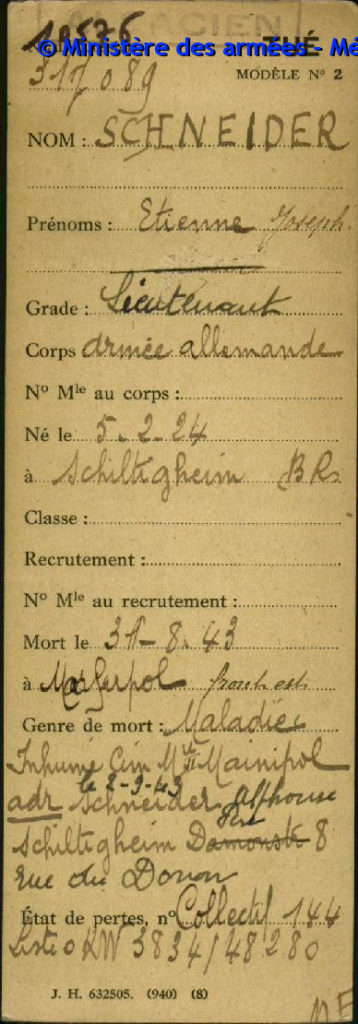 ALSACIEN
18576
© Ministère des armées - Mé
THÉ
317089
MODÈLE N° 2
NOM : SCHNEIDER
Prénoms : Etienne Joseph
Grade : Lieutenant
Corps armée allemande
N° Mle au corps :
Né le 5-2-24
à Schiltigheim BR
Classe :
Recrutement :
N° Mle au recrutement :
Mort le 31-8.43
à front est
Genre de mort : Maladie
Inhumé Cim Mre Mainipol
le 2-9-43
adr Schneider Alphonse
père
Schiltigheim 8
Rue du Donon
État de pertes, n° Collectif 144
Liste OKW 3834/48280
J. H. 632505. (940) (8)